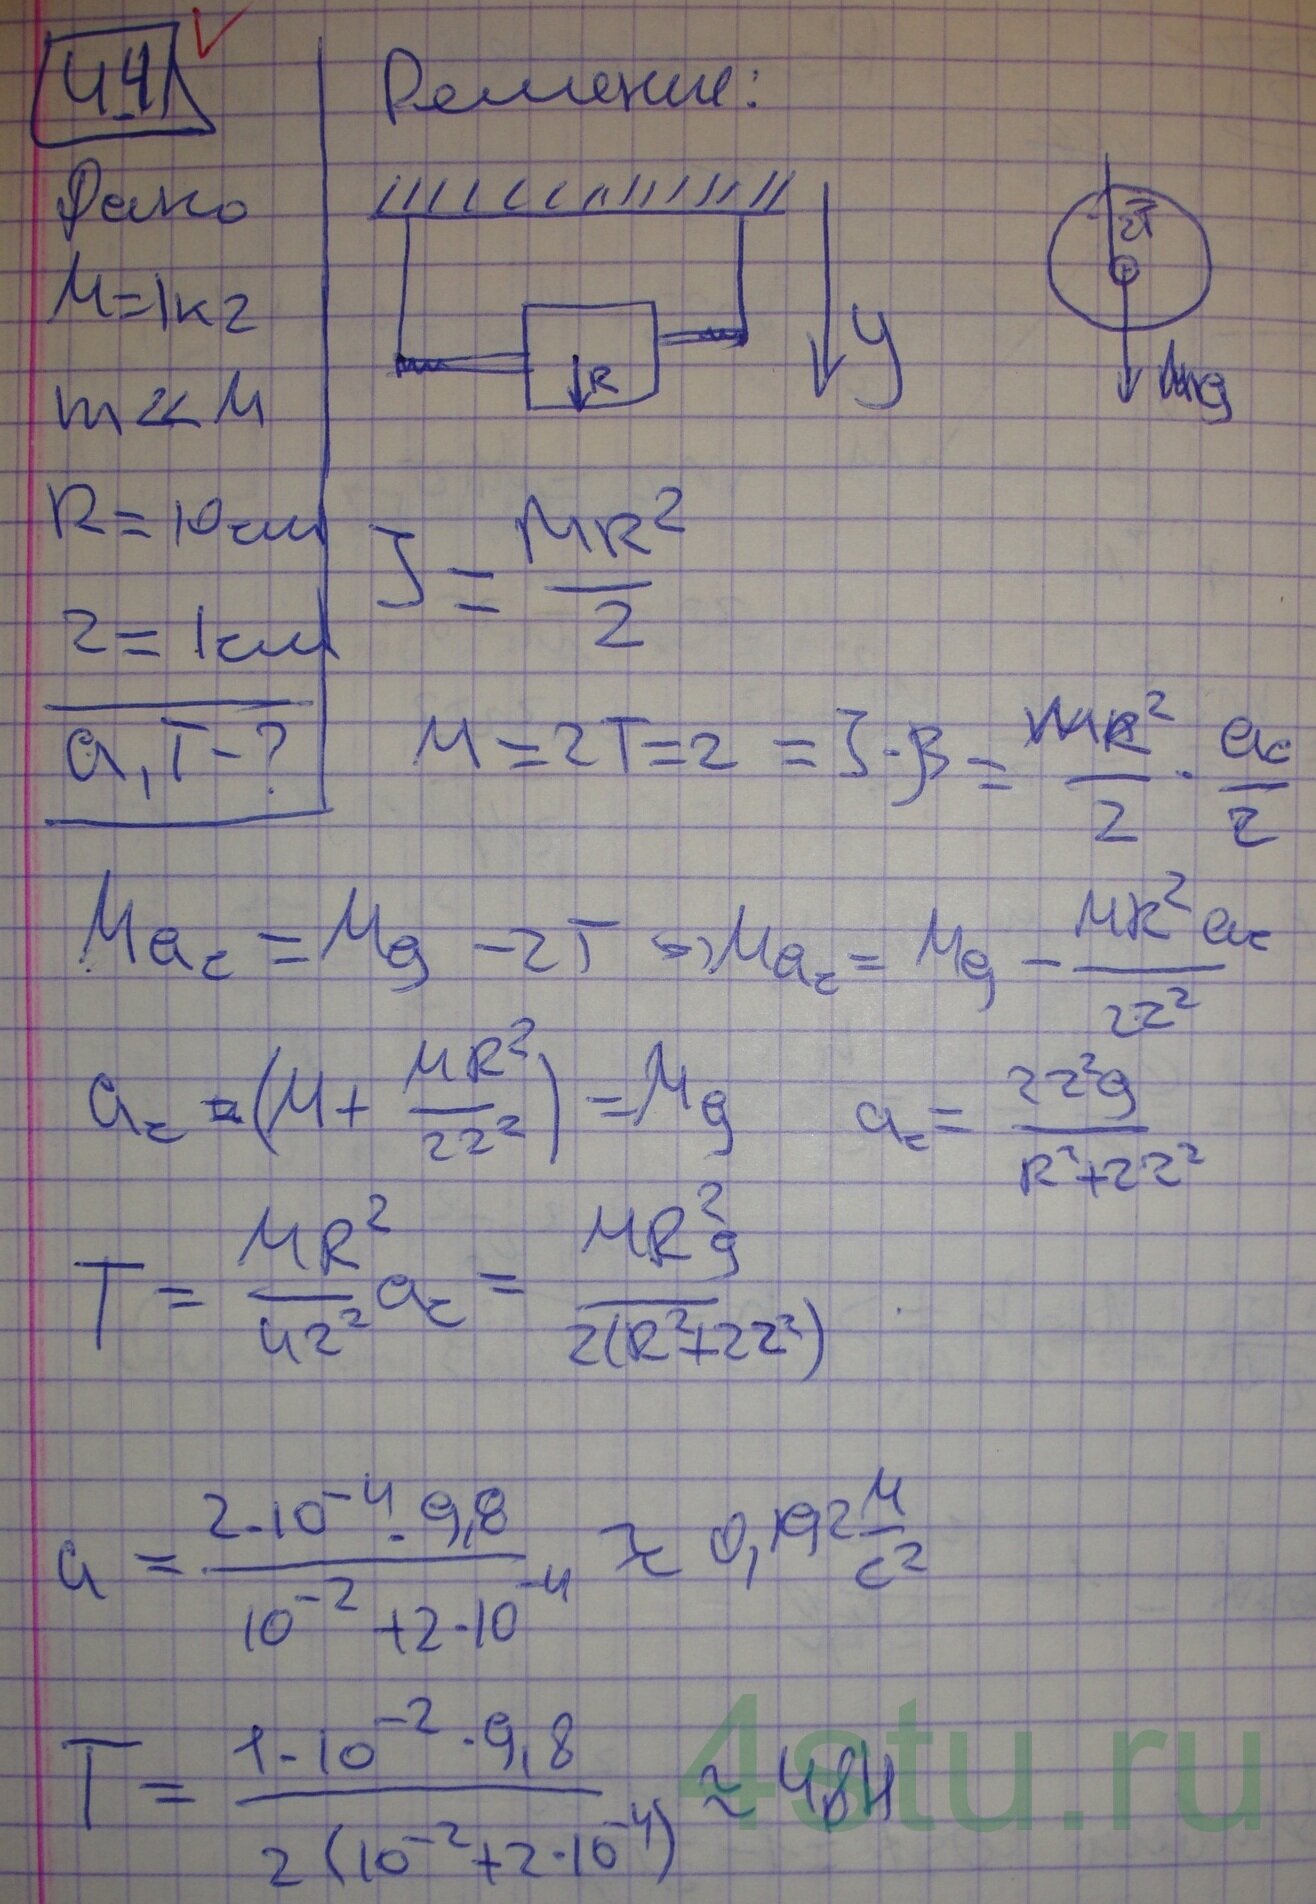 4.4
Решение:
Дано
M=1кг
m<<M
R=10см
r=1см
a,T-?
R
y
Mg
J = MR²/2
M=2T=r = J·β = MR²/2 · a_c/r
Ma_c = Mg - 2T => Ma_c = Mg - MR²a_c/2r²
a_c = (M + MR²/2r²) = Mg a_c = 2r²g/R²+2r²
T = MR²/4r² a_c = MR²g/2(R²+2r²)
a = 2·10⁻⁴·9,8/10⁻²+2·10⁻⁴ ≈ 0,192 м/с²
T = 1·10⁻²·9,8/2(10⁻²+2·10⁻⁴) ≈ 4,8Н
4stu.ru